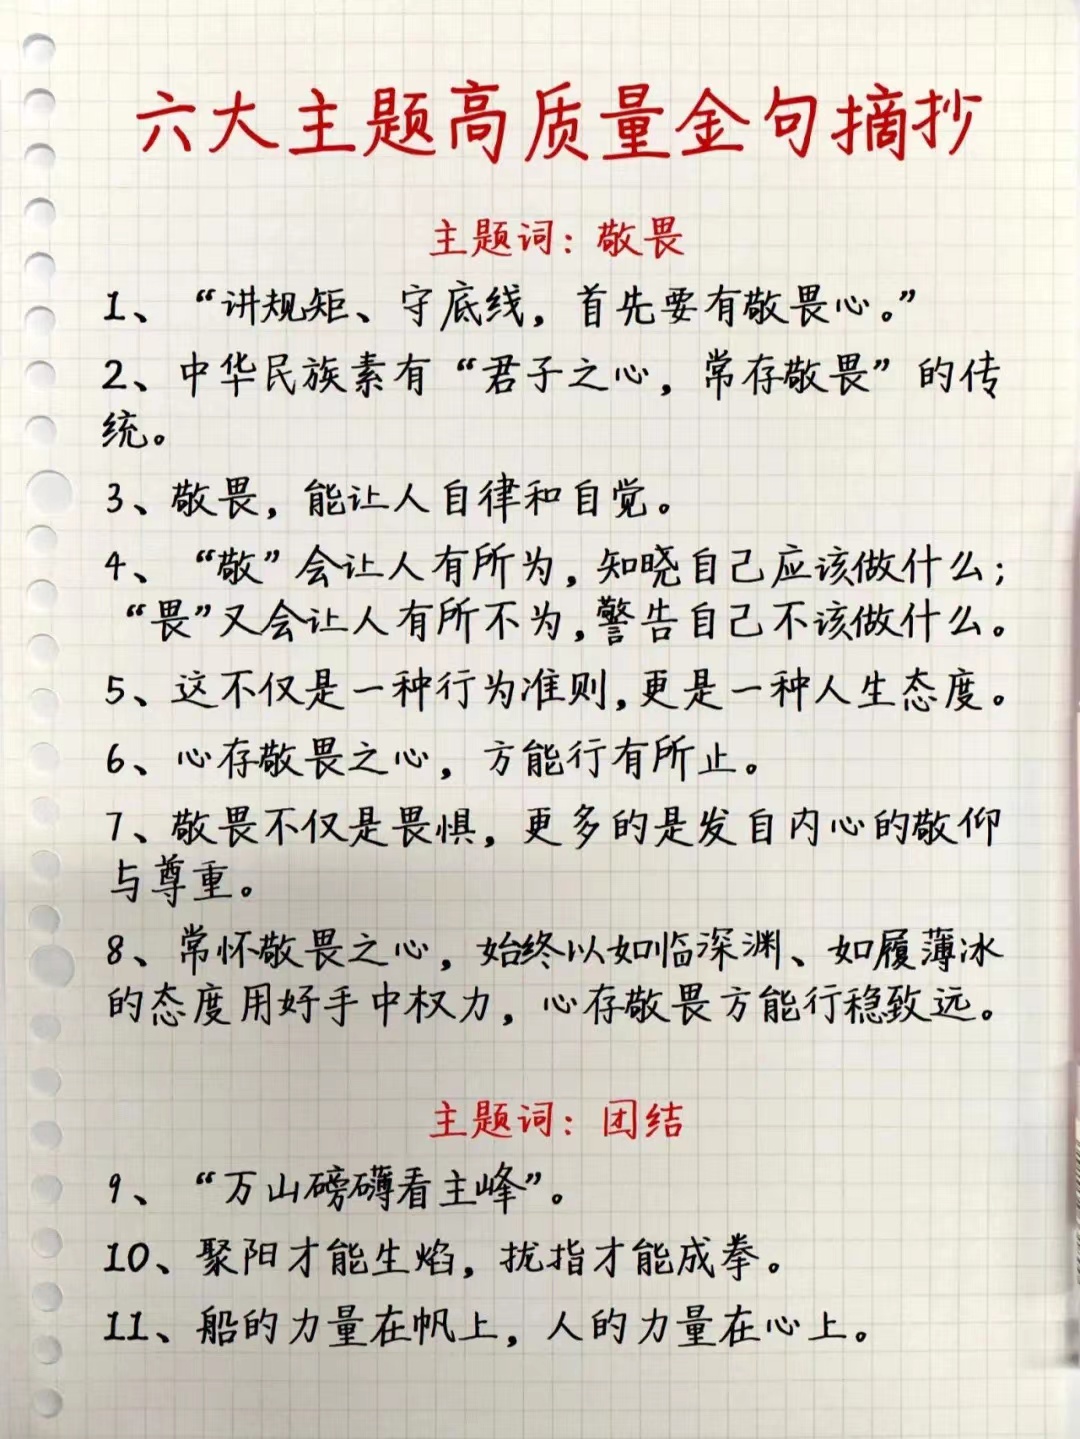 六大主题高质量金句摘抄
主题词：敬畏
1、“讲规矩、守底线，首先要有敬畏心。”
2、中华民族素有“君子之心，常存敬畏”的传
统。
3、敬畏，能让人自律和自觉。
4、“敬”会让人有所为，知晓自己应该做什么；
“畏”又会让人有所不为，警告自己不该做什么。
5、这不仅是一种行为准则，更是一种人生态度。
6、心存敬畏之心，方能行有所止。
7、敬畏不仅是畏惧，更多的是发自内心的敬仰
与尊重。
8、常怀敬畏之心，始终以如临深渊、如履薄冰
的态度用好手中权力，心存敬畏方能行稳致远。
主题词：团结
9、“万山磅礴看主峰”。
10、聚阳才能生焰，拢指才能成拳。
11、船的力量在帆上，人的力量在心上。